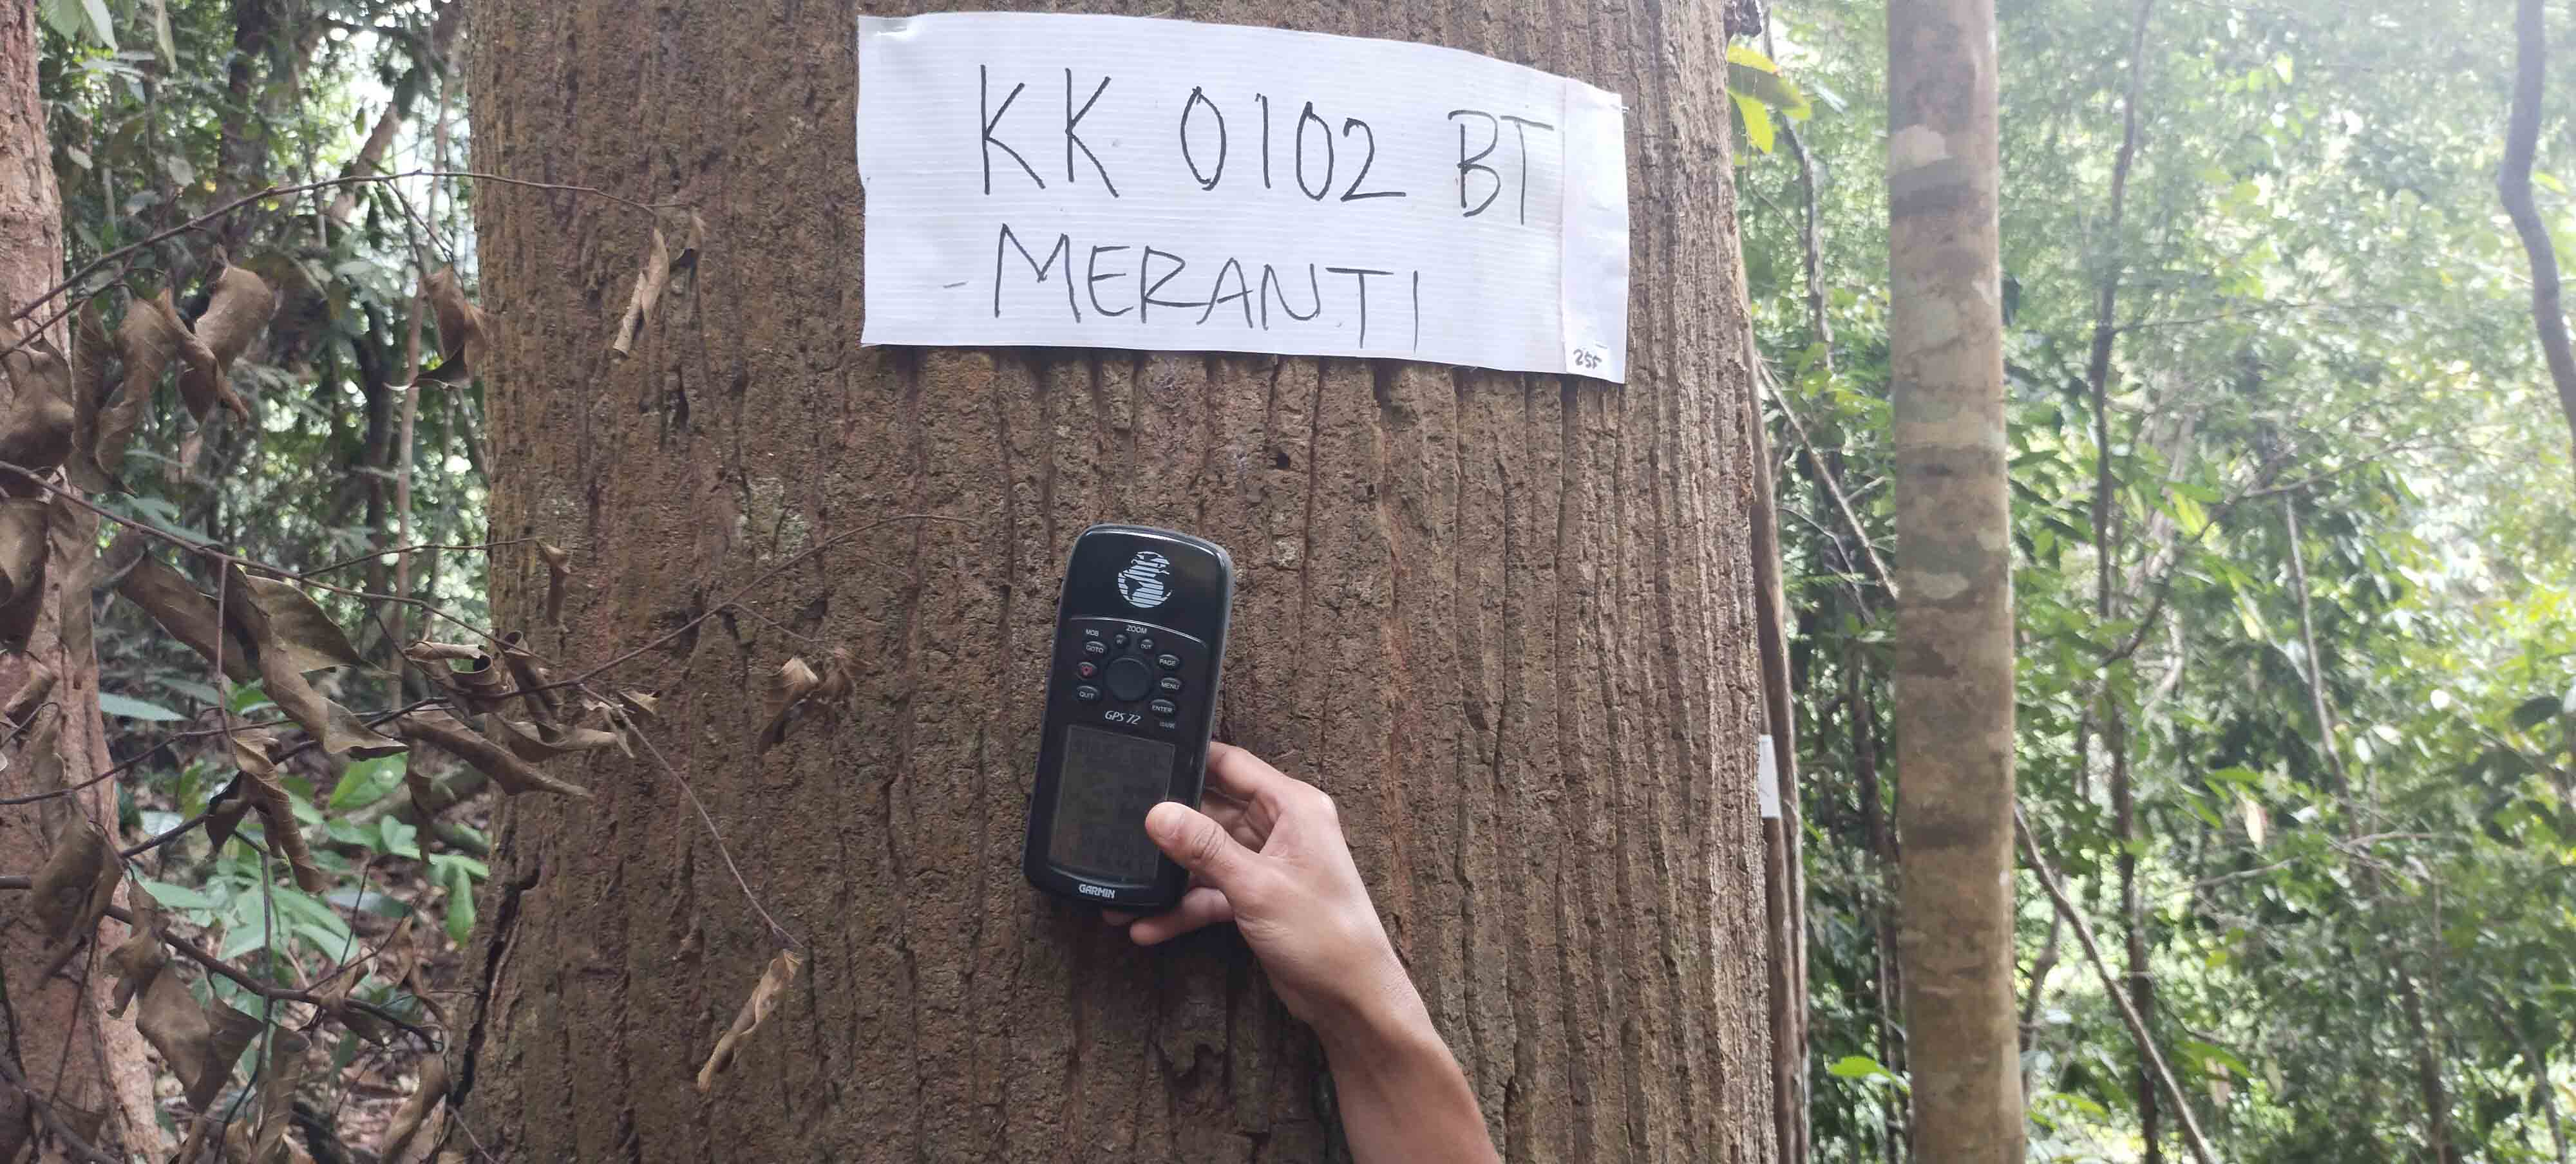 KK 0102 BT
- MERANTI
255
ZOOM
MOB
IN OUT
GOTO PAGE
MENU
QUIT ENTER
MARK
GPS 72
GARMIN